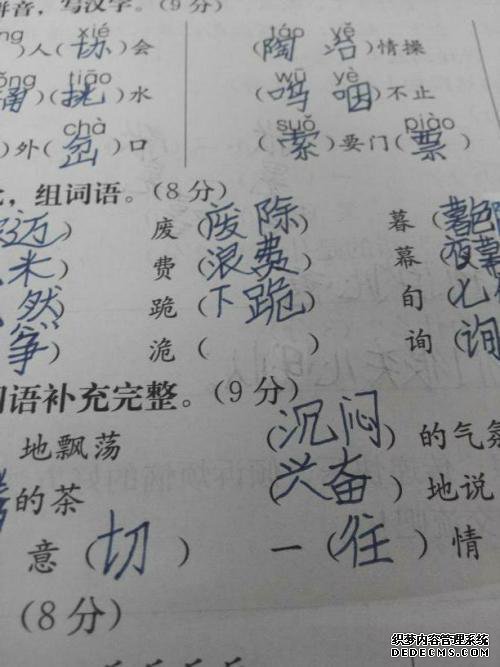 拼音，写汉字。(9分)
xié táo yě
人(协)会 (陶冶)情操
tiāo wū yè
(挑)水 (呜咽)不止
chà suǒ piào
)外(岔)口 (索)要门(票)
，组词语。(8分)
迈) 废(废除) 暮(暮
米) 费(浪费) 幕(夜幕
然) 跪(下跪) 旬(七
筝) 诡( ) 询(询
词语补充完整。(9分)
地飘荡 (沉闷)的气氛
的茶 (兴奋)地说
意(切) 一(往)情
(8分)
织梦内容管理系统
DEDECMS.COM